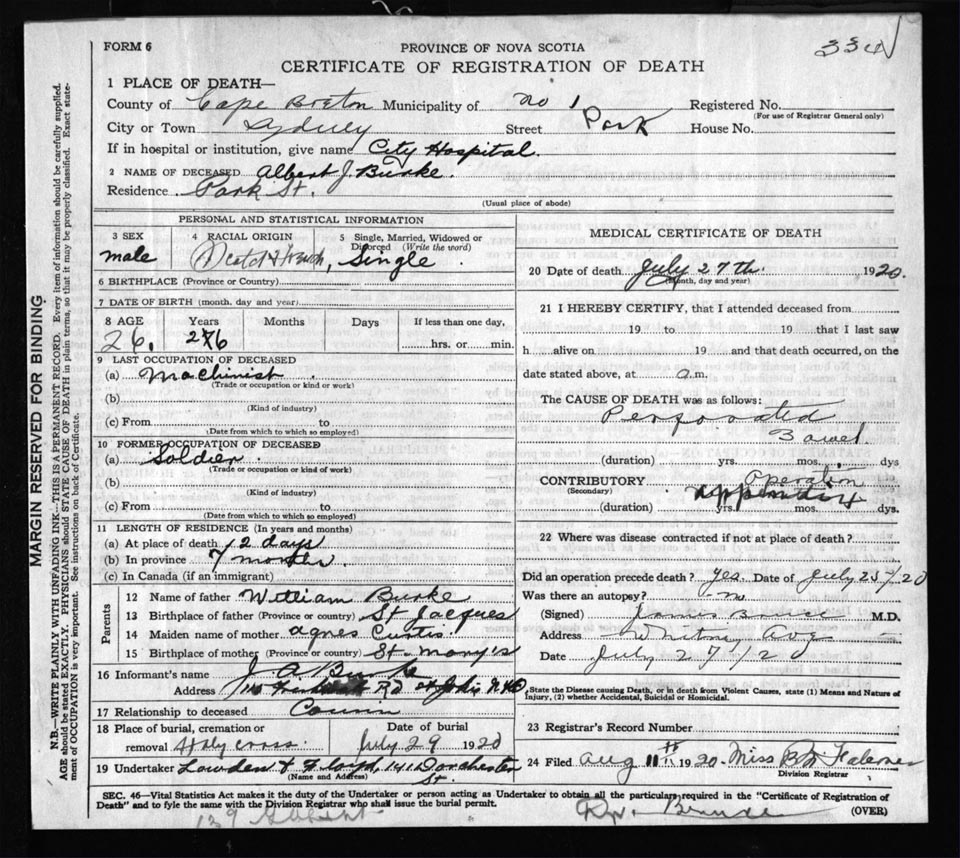 FORM 6
PROVINCE OF NOVA SCOTIA
CERTIFICATE OF REGISTRATION OF DEATH
MARGIN RESERVED FOR BINDING.
N.B.—WRITE PLAINLY WITH UNFADING INK—THIS IS A PERMANENT RECORD. Every item of information should be carefully supplied.
AGE should be stated EXACTLY. PHYSICIANS should STATE CAUSE OF DEATH in plain terms, so that it may be properly classified. Exact state-
ment of OCCUPATION is very important. See instructions on back of Certificate.
1 PLACE OF DEATH—
County of Cape Breton Municipality of No 1 Registered No.
(For use of Registrar General only)
City or Town Sydney Street Park House No.
If in hospital or institution, give name City Hospital.
2 NAME OF DECEASED Albert J. Burke.
Residence Park St.
(Usual place of abode)
PERSONAL AND STATISTICAL INFORMATION
3 SEX 4 RACIAL ORIGIN 5 Single, Married, Widowed or Divorced (Write the word)
male Scotch French, Single
6 BIRTHPLACE (Province or Country)
7 DATE OF BIRTH (month, day and year)
8 AGE Years Months Days If less than one day,
26. hrs. or min.
9 LAST OCCUPATION OF DECEASED
(a) Machinist
(Trade or occupation or kind or work)
(b)
(Kind of industry)
(c) From to
(Date from which to which so employed)
10 FORMER OCCUPATION OF DECEASED
(a) Soldier
(Trade or occupation or kind of work)
(b)
(Kind of industry)
(c) From to
(Date from which to which so employed)
11 LENGTH OF RESIDENCE (In years and months)
(a) At place of death 2 days
(b) In province 7 months.
(c) In Canada (if an immigrant)
Parents
12 Name of father William Burke
13 Birthplace of father (Province or country) St Jacques
14 Maiden name of mother Agnes Curtis.
15 Birthplace of mother (Province or country) St. Mary's
16 Informant's name J A Burke
Address Rd St John's Nfld
17 Relationship to deceased Cousin
18 Place of burial, cremation or removal Holy Cross. Date of burial July 29 1920
19 Undertaker Lowden & Floyd, 141 Dorchester St.
(Name and Address)
MEDICAL CERTIFICATE OF DEATH
20 Date of death July 27th 1920.
(Month, day and year)
21 I HEREBY CERTIFY, that I attended deceased from
19 to 19 that I last saw
h alive on 19 and that death occurred, on the
date stated above, at a.m.
The CAUSE OF DEATH was as follows:
Perforated
Bowel
(duration) yrs. mos. dys
CONTRIBUTORY Operation
(Secondary) appendix
(duration) yrs. mos. dys.
22 Where was disease contracted if not at place of death?
Did an operation precede death? Yes Date of July 25/20
Was there an autopsy? no
(Signed) James Bruce M.D.
Address Whitney Ave
Date July 27/20
State the Disease causing Death, or in death from Violent Causes, state (1) Means and Nature of
Injury, (2) whether Accidental, Suicidal or Homicidal.
23 Registrar's Record Number
24 Filed Aug 11th 1920. Miss
Division Registrar
SEC. 46—Vital Statistics Act makes it the duty of the Undertaker or person acting as Undertaker to obtain all the particulars required in the "Certificate of Registration of
Death" and to fyle the same with the Division Registrar who shall issue the burial permit.
(OVER)
139